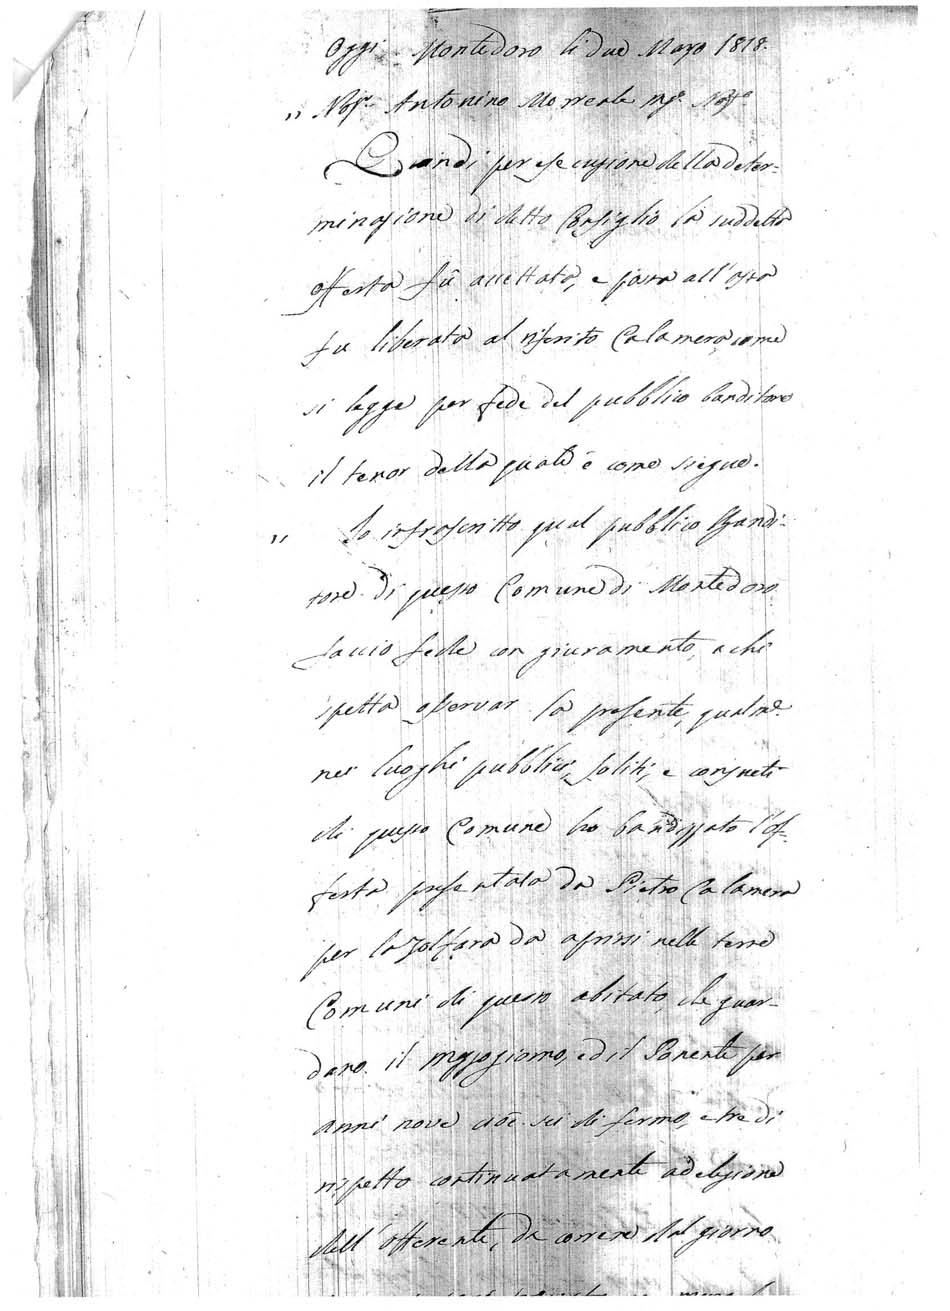 Oggi Montedoro li due Marzo 1818.
" Not.r Antonino Morreale
Quindi per esecuzione della deter-
minazione di detto Consiglio la suddetta
offerta fù accettata, e posta all'asta
fu liberata al riferito Calamera, come
si legge per fede del pubblico banditore
il tenor della quale è come siegue.
" Io infrascritto qual pubblico Bandi-
tore di questo Comune di Montedoro
faccio fede con giuramento, a chi
spetta osservar la presente, qualm.e
nei luoghi pubblici, soliti, e consueti
di questo Comune ho bandizzato l'of-
ferta presentata da Pietro Calamera
per la Zolfara da aprirsi nelle terre
Comuni di questo abitato, che guar-
dano il mezzogiorno, ed il Ponente per
anni nove cioè sei di fermo, e tre di
rispetto continuatamente ad elezione
dell'offerente, da correre dal giorno